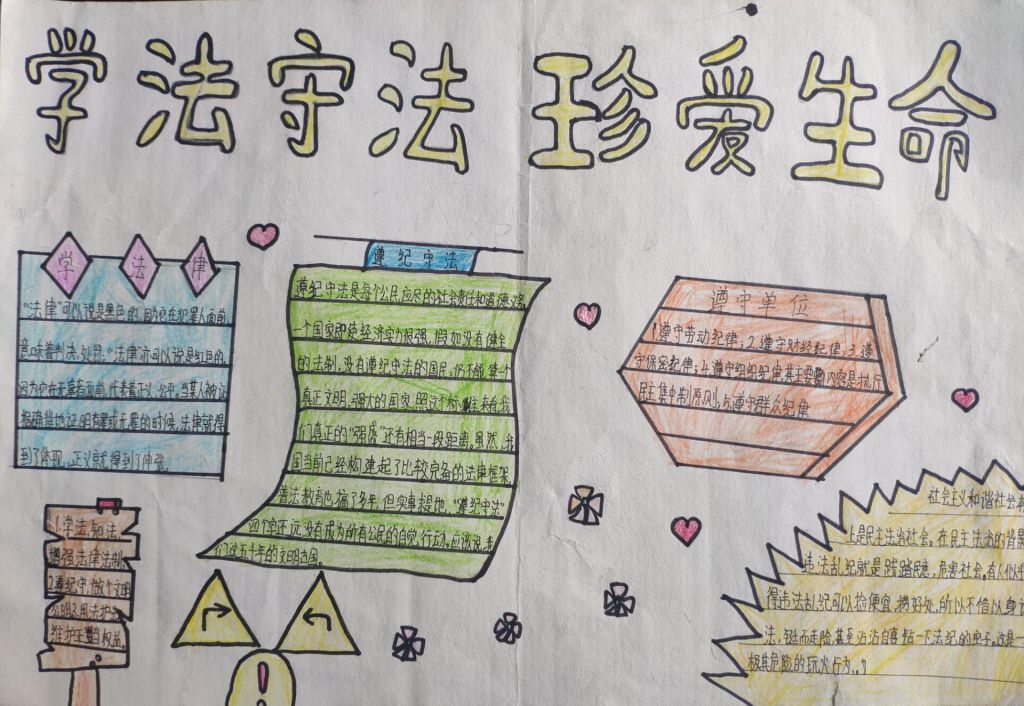 学法守法 珍爱生命
学法律
“法律”可以说是黑色的，因为它在犯罪人面前，
意味着判决、处罚；“法律”亦可以说是红色的，
因为它在无辜者面前，代表着正义、公平。当某人被证
据确凿地证明有罪或无罪的时候，法律就得
到了体现，正义就得到了伸张。
遵纪守法
遵纪守法是每个公民应尽的社会责任和道德义务，
一个国家即使经济实力很强，假如没有健全
的法制，没有遵纪守法的国民，仍不能算个
真正文明、强大的国家，照这个标准来看，我
们真正的“强盛”还有相当一段距离。虽然，我
国当前已经构建起了比较完备的法律框架，
普法教育也搞了多年，但实事求是地，“遵纪守法”
四个字还远没有成为所有公民的自觉行动。应该说，我
们这五千年的文明古国。
遵守单位
1.遵守劳动纪律；2.遵守财经纪律；3.遵
守保密纪律；4.遵守组织纪律，其主要内容是执行
民主集中制原则。5.遵守群众纪律
1.学法知法
增强法律法制
2.遵纪守，做个文明
公明3.用法护法
维护正当权益。
社会主义和谐社会
上是民主生治社会。在民主法治的背景
违法乱纪就是践踏民意，危害社会。有人似乎
得违法乱纪可以捡便宜，捞好处，所以不借以身
法，铤而走险，甚至沾沾自喜钻一下法纪的空子。这是一
极其危险的玩火行为。